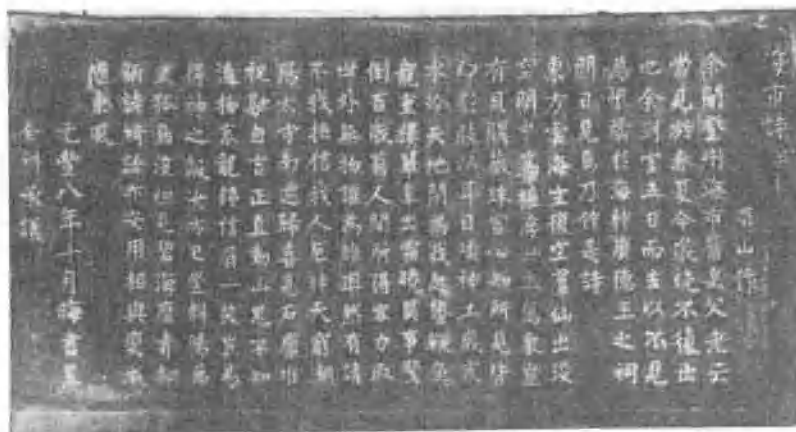 市詩
余聞登州海市舊矣父老云
嘗見於春夏今歲晚不復出
也余到官五日而去以不見
為恨禱於海神廣德王之祠
明日見焉乃作是詩
東方雲海空復空羣仙出沒
空明中蕩搖浮世生萬象豈
有貝闕藏珠宮心知所見皆
幻影敢以耳目煩神工歲寒
水冷天地閉為我起蟄鞭魚
龍重樓翠阜出霜曉異事驚
倒百歲翁人間所得容力取
世外無物誰為雄率然有請
不我拒信我人厄非天窮潮
陽太守南遷歸喜見石廩堆
祝融自言正直動山鬼不知
造物哀龍鍾信眉一笑豈易
得神之報汝亦已豐斜陽萬
里孤鳥沒但見碧海磨青銅
新詩綺語亦安用相與變滅
隨東風
元豐八年十月晦書呈
全叔承議